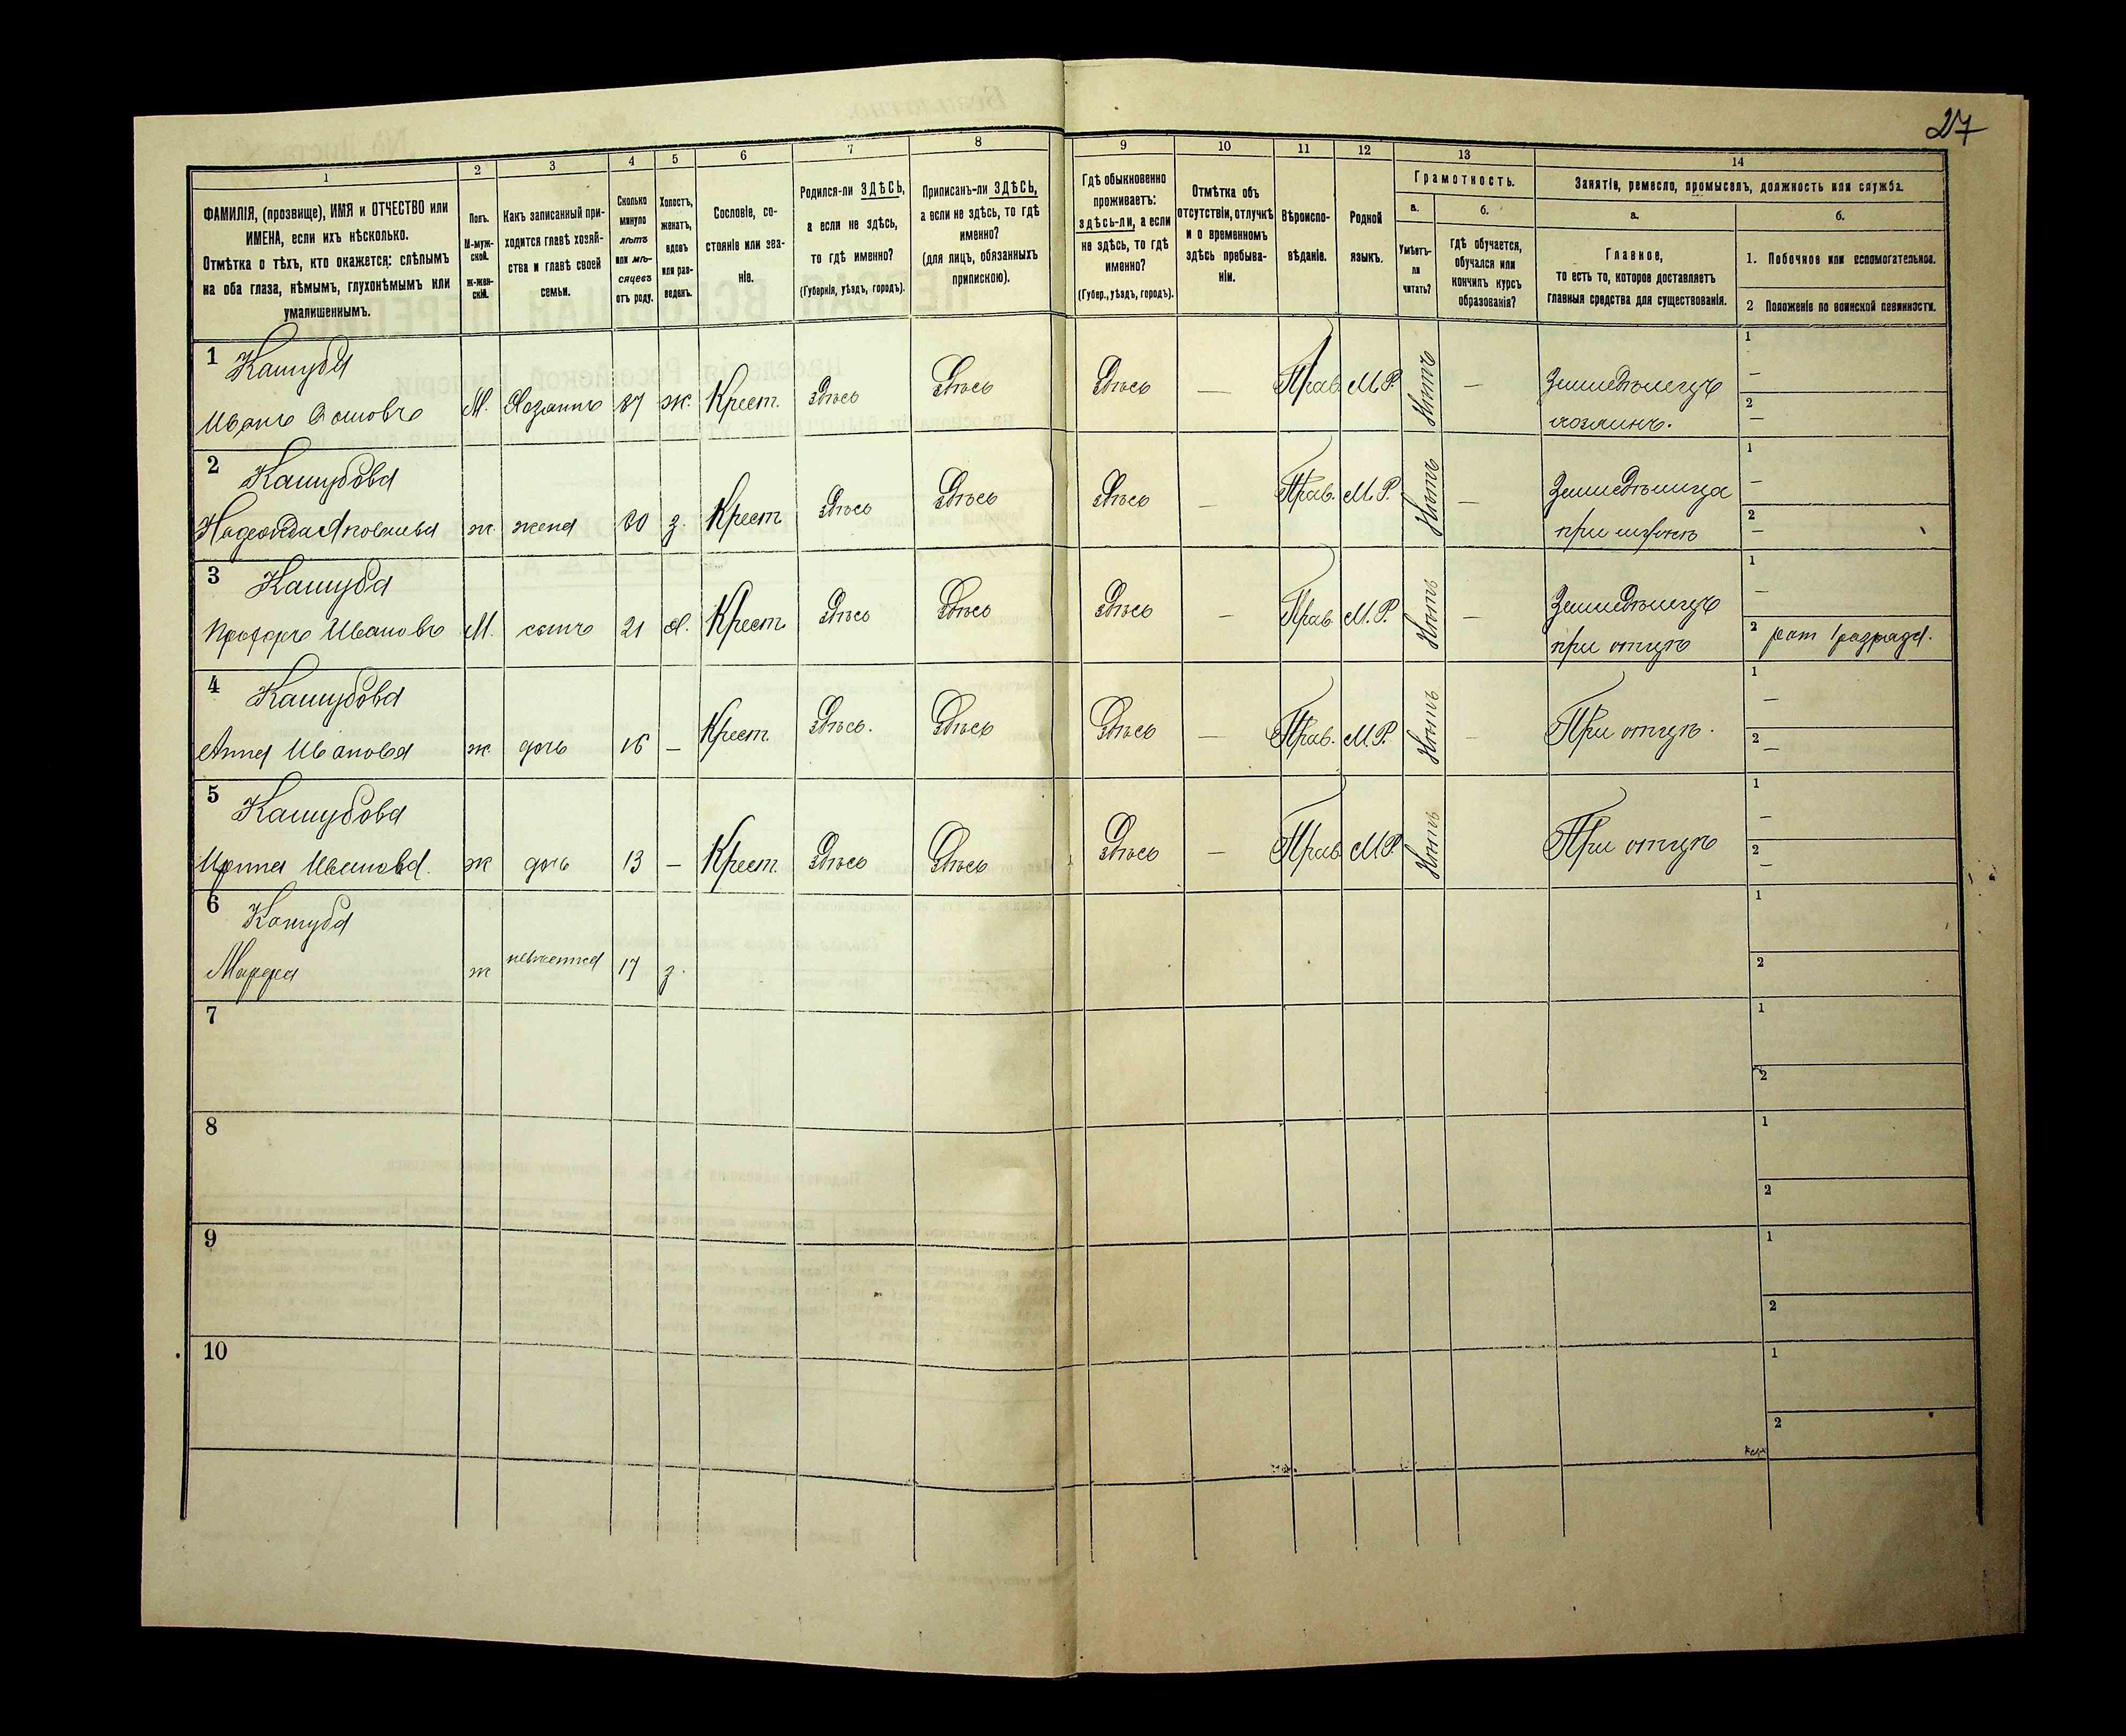 27
1
2
3
4
5
6
7
8
9
10
11
12
13
14
ФАМИЛІЯ, (прозвище), ИМЯ и ОТЧЕСТВО или
ИМЕНА, если ихъ нѣсколько.
Отмѣтка о тѣхъ, кто окажется: слѣпымъ
на оба глаза, нѣмымъ, глухонѣмымъ или
умалишеннымъ.
Полъ.
М-муж-
ской.
ж-жен-
скій.
Какъ записанный при-
ходится главѣ хозяй-
ства и главѣ своей
семьи.
Сколько
минуло
лѣтъ
или мѣ-
сяцевъ
отъ роду.
Холостъ,
женатъ,
вдовъ
или раз-
веденъ.
Сословіе, со-
стояніе или зва-
ніе.
Родился-ли ЗДѢСЬ,
а если не здѣсь,
то гдѣ именно?
(Губернія, уѣздъ, городъ).
Приписанъ-ли ЗДѢСЬ,
а если не здѣсь, то гдѣ
именно?
(для лицъ, обязанныхъ
припискою).
Гдѣ обыкновенно
проживаетъ:
здѣсь-ли, а если
не здѣсь, то гдѣ
именно?
(Губер., уѣздъ, городъ).
Отмѣтка объ
отсутствіи, отлучкѣ
и о временномъ
здѣсь пребыва-
ніи.
Вѣроиспо-
вѣданіе.
Родной
языкъ.
Грамотность.
а.
Умѣетъ-
ли
читать?
б.
Гдѣ обучается,
обучался или
кончилъ курсъ
образованія?
Занятіе, ремесло, промыселъ, должность или служба.
а.
Главное,
то есть то, которое доставляетъ
главныя средства для существованія.
б.
1. Побочное или вспомогательное.
2 Положеніе по воинской повинности.
1 Кашуба
Иванъ М. Хозяинъ ж. Крест. здѣсь здѣсь здѣсь — Прав. М.Р. Нѣтъ — Земледѣлецъ
хозяинъ.
1 —
2 —
2 Кашубова
Надежда Яковлева ж. жена з. Крест здѣсь здѣсь здѣсь — Прав. М.Р. Нѣтъ — Земледѣлица
при мужѣ
1 —
2 —
3 Кашуба
Ивановъ М. сынъ 21 Крест здѣсь здѣсь здѣсь — Прав. М.Р. Нѣтъ — Земледѣлецъ
при отцѣ
1 —
2 рат 1 разряда.
4 Кашубова
Анна Иванова ж дочь 16 — Крест. здѣсь. здѣсь здѣсь — Прав. М.Р. Нѣтъ — При отцѣ.
1 —
2 —
5 Кашубова
Ирина Иванова. ж дочь 13 — Крест. здѣсь здѣсь здѣсь — Прав М.Р Нѣтъ При отцѣ
1 —
2 —
6 Кашуба
Марфа ж невѣстка 17 з.
1
2
7
1
2
8
1
2
9
1
2
10
1
2